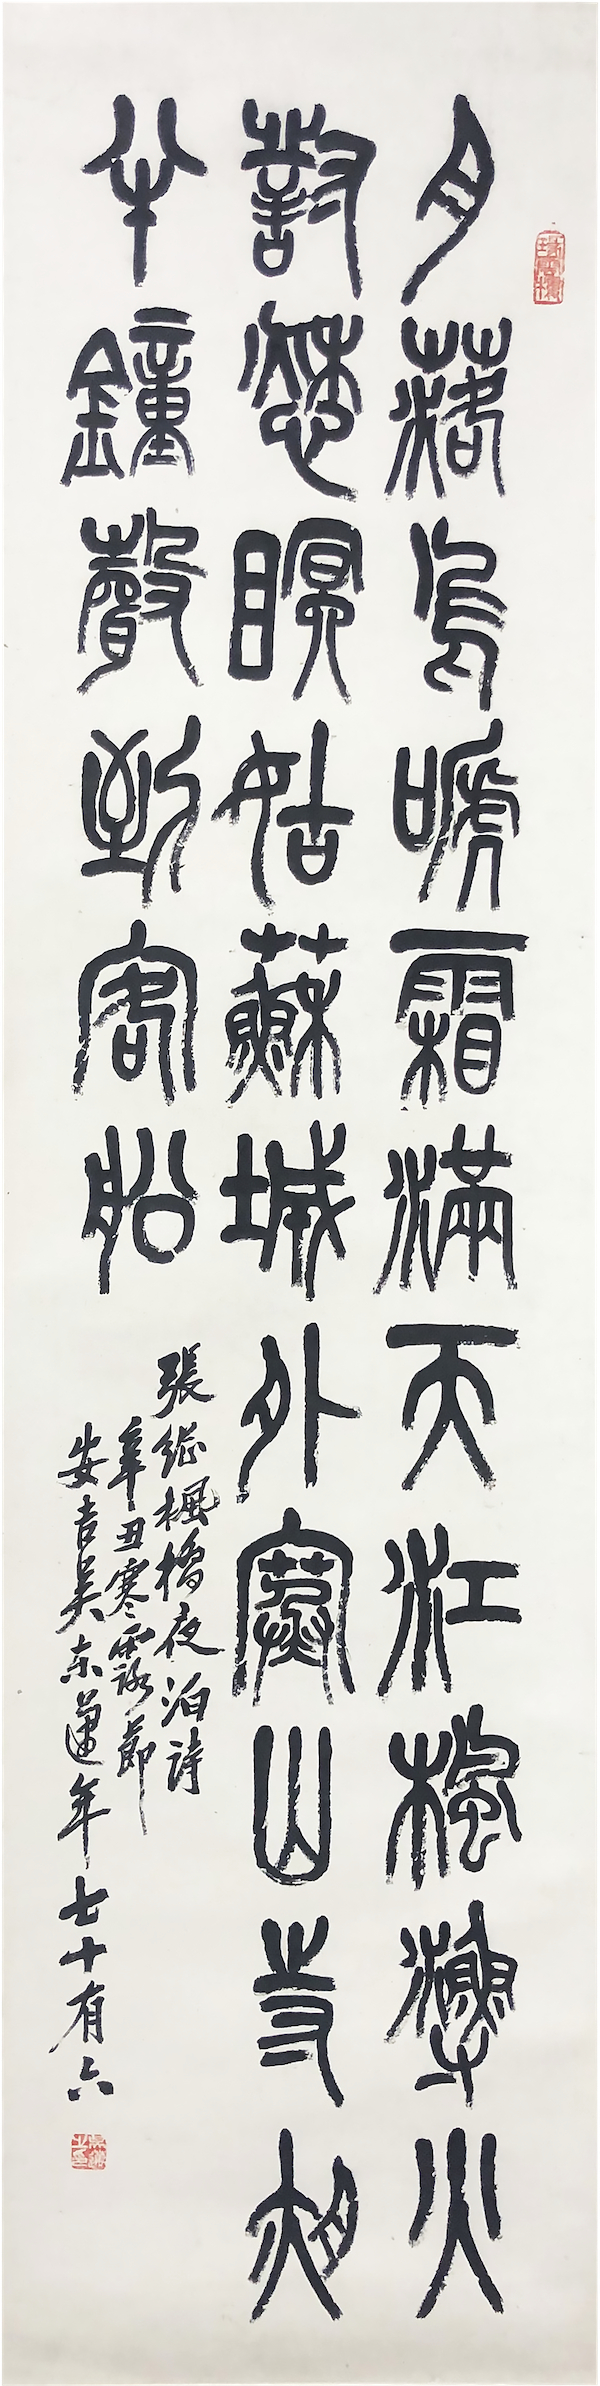 月落烏嗁霜滿天江楓漁火
對愁瞑姑蘇城外寒山寺夜
半鐘聲到客船
張継楓橋夜泊詩
辛丑寒露節
安吉吳東邁年七十有六